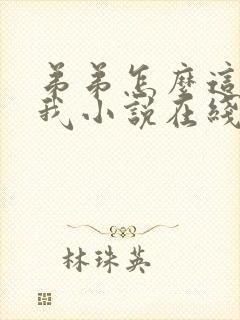 弟弟怎麼這
我小說在綫
林珠英